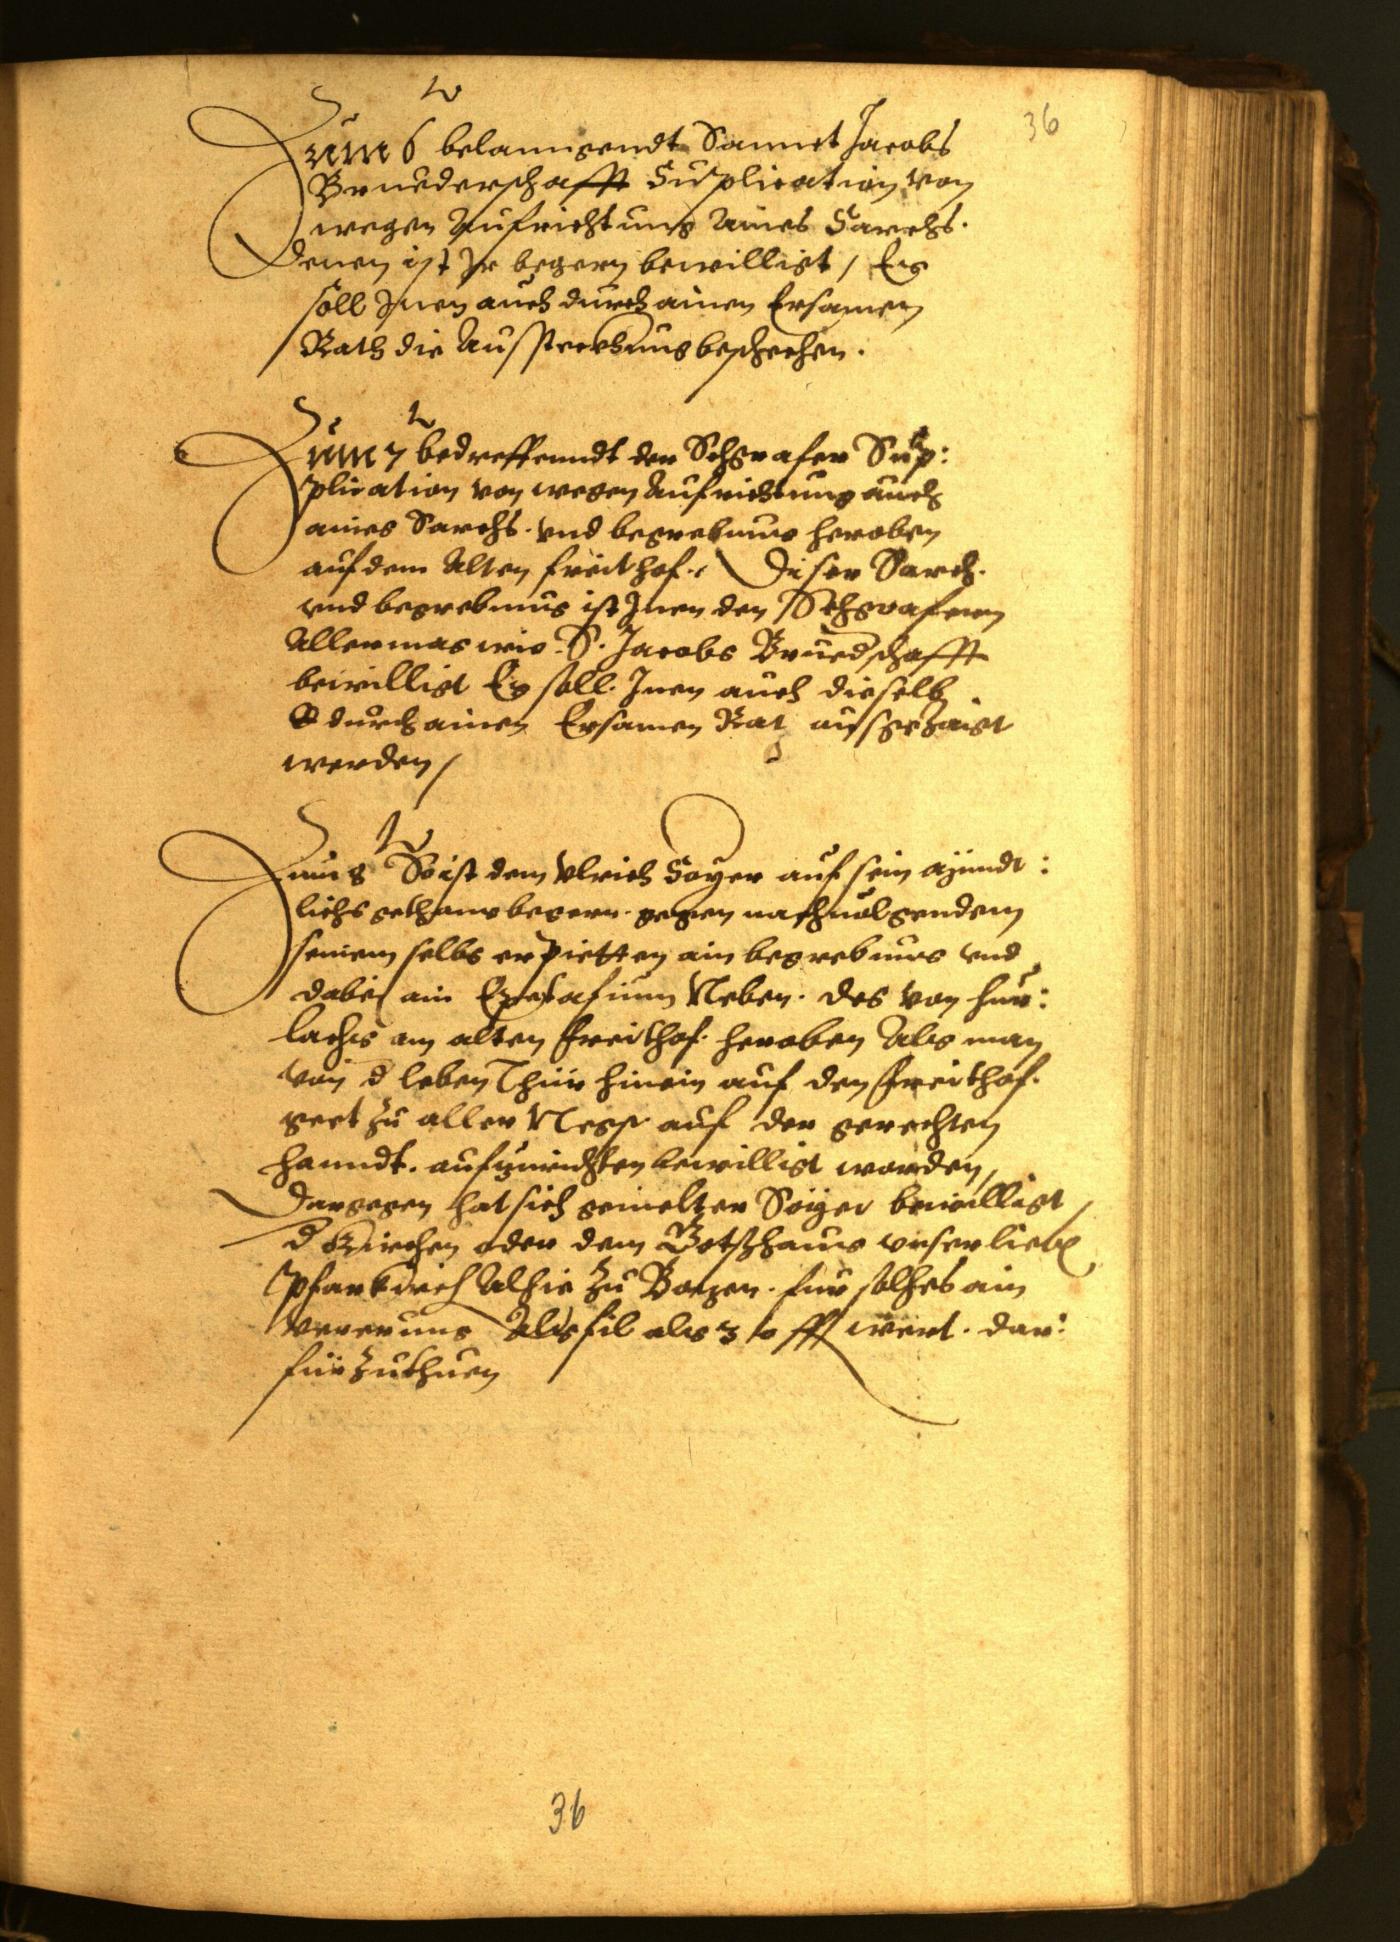 36
Zum 6 belanngendt Sannct Jacobs
Bruederschafft Suplication von
wegen Aufrichtung Aines Sarchs.
Denen ist Jr begern bewilligt / Es
soll Jnen auch durch ainen Ersamen
Rath die Ausstreckhung beschechen.
Zum 7 bedreffenndt der Schgrafer Sup:
plication von wegen Aufrichtung auch
aines Sarchs. vnd begrebnus heroben
auf dem Alten freithof. Diser Sarch.
vnd begrebnus ist Jnen den Schgrafern
Allermas wie S. Jacobs Bruedschafft
bewilligt Es soll Jnen auch dieselb
durch ainen Ersamen Rat ausgezaigt
werden /
Zum 8 So ist dem Vlrich Soyer auf sein mündt:
lichs gethans begern. gegen nachuolgendem
seinem selbs erpietten ain begrebnus vnd
dabei ain Neben. des von Hur:
lachs am alten freithof. heroben Als man
von d leben Thür hinein auf den freithof.
geet zu aller Negst auf der gerechten
hanndt. aufzurichten bewilligt worden,
Dargegen hat sich gemelter Soyer bewilligt /
d Kirchen oder dem Gotshaus vnser lieben
Pfarkirch Alhie zu Bozen. für solhes ain
vererung Als fil als 30 wert. dar:
für zuthuen
36